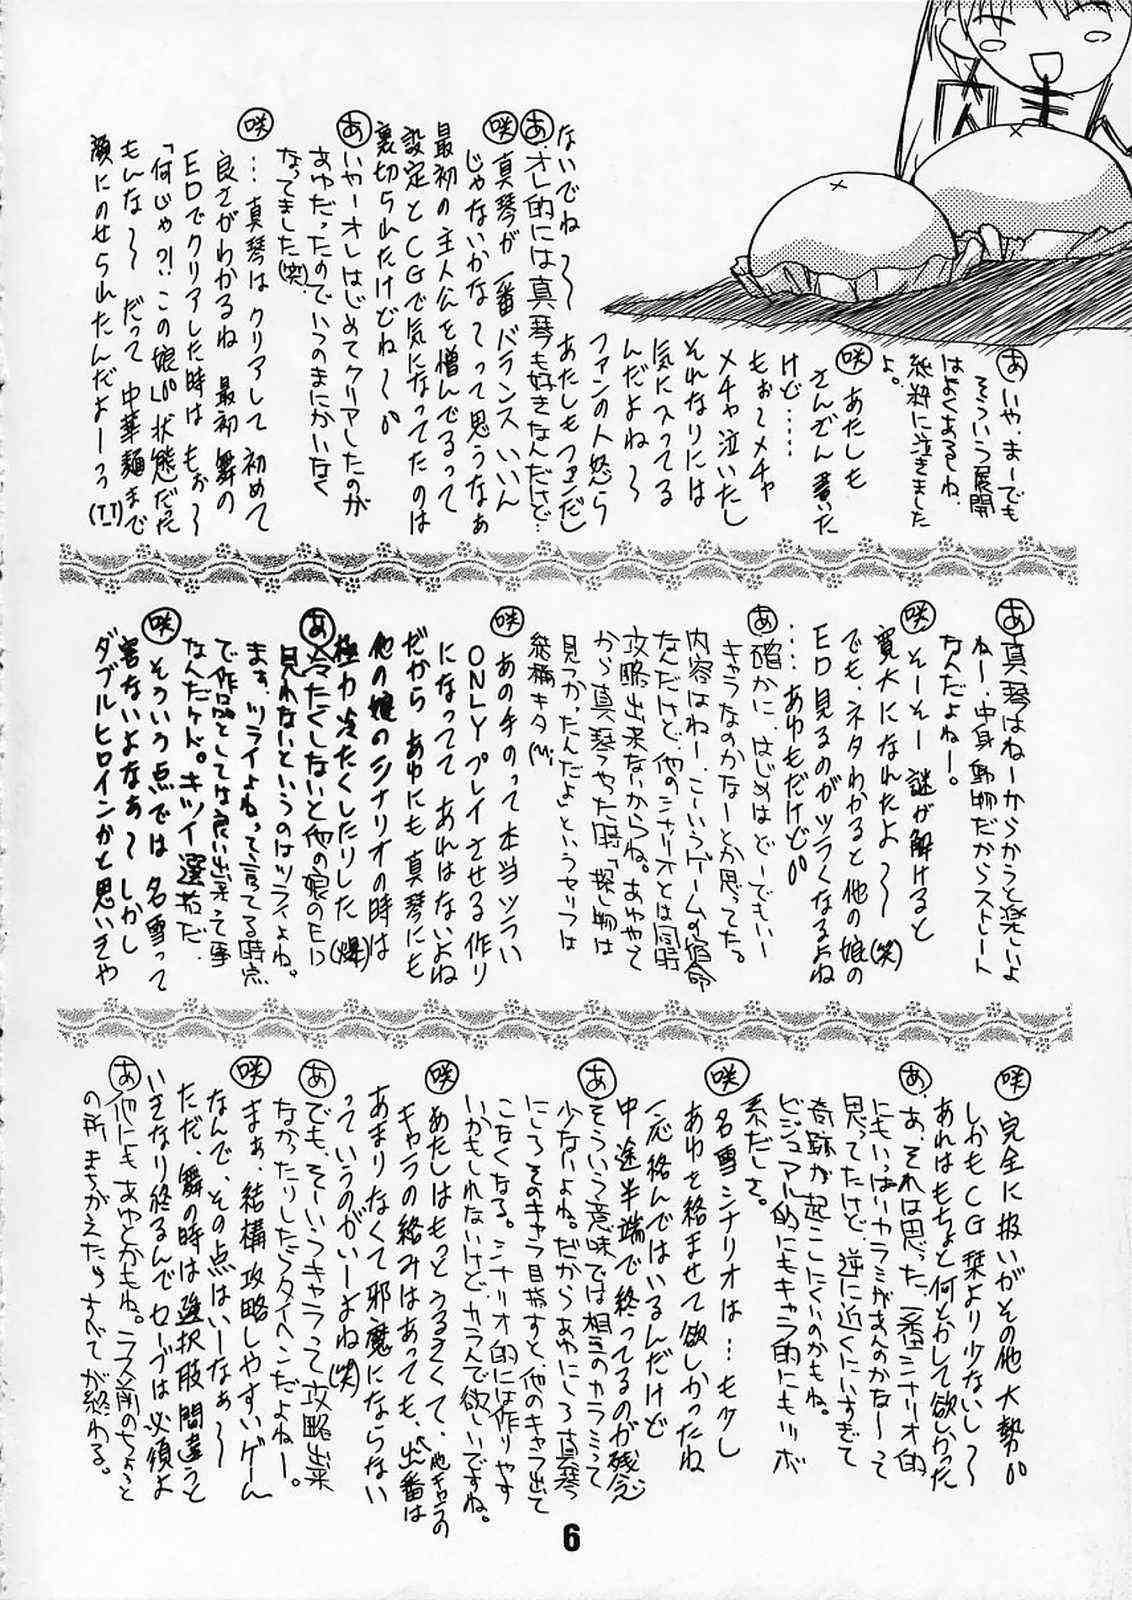 にくまん
あ いや、まーでも
そういう展開
はよくあるしね、
純粋に泣きました
よ。
咲 あたしも
さんざん書いた
けど……
もぉ〜メチャ
メチャ泣いたし
それなりには
気に入ってる
んだよね〜
ファンの人怒ら
ないでね〜 あたしもファンだし
あ オレ的には真琴も好きなんだけど…
咲 真琴が一番バランスいいん
じゃないかなってって思うなぁ
最初の主人公を憎んでるって
設定とCGで気になってたのは
裏切られたけどね〜
あ いやーオレはじめてクリアしたのが
あゆだったのでいつのまにかいなく
なってました(笑)
咲 …真琴はクリアして初めて
良さがわかるね 最初舞の
EDでクリアした時はもぉ〜
「何じゃ?!この娘」状態だった
もんな〜 だって中華麺まで
顔にのせられたんだよーっっ
(TT)
あ 真琴はねーからかうと楽しいよ
ねー、中身動物だからストレート
なんだよねー。
咲 そーそー 謎が解けると
寛大になれたよ〜(笑)
でも、ネタわかると他の娘の
ED見るのがツラくなるよね
……あゆもだけど
あ 確かに、はじめはどーでもいー
キャラなのかなーとか思ってた。
内容はねー、こーいうゲームの宿命
なんだけど、他のシナリオとは同時
攻略出来ないからね。あゆやって
から真琴やった時「探し物は
見つかったんだよ」というセリフは
結構キタ
咲 あの手のって本当ツライ
ONLYプレイさせる作り
になってて あれはないよね
だから あゆにも真琴にも
他の娘のシナリオの時は
極力冷たくしたりした(爆)
あ 冷たくしないと他の娘のEDに
見れないというのはツライよね。
まぁ、ツライよねって言ってる時点
で作品としては良い出来って事
なんだケド。キツイ選択だ。
咲 そういう点では名雪って
害ないよなぁ〜 しかし
ダブルヒロインかと思いきや
咲 完全に扱いがその他大勢
しかもCG栞より少ないし〜
あれはもちょと何とかして欲しかった
あ あ、それは思った、一番シナリオ的
にもいっぱいカラミがあんのかなーって
思ってたけど、逆に近くにいすぎて
奇跡が起こりにくいのかもね。
ビジュアル的にもキャラ的にもツボ
系だしさ。
咲 名雪シナリオは…も少し
あゆを絡ませて欲しかったね
一応絡んではいるんだけど
中途半端で終ってるのが残念
あ そういう意味では相互のカラミって
少ないよね。だからあゆにしろ真琴
にころそのキャラ目指すと、他のキャラ出て
こなくなる。シナリオ的には作りやす
いかもしれないけど、カラんで欲しいですね。
咲 あたしはもっとうるさくて、他キャラの
キャラの絡みはあっても、出番は
あまりなくて邪魔にならない
っていうのがいーよね(笑)
あ でも、そーいうキャラって攻略出来
なかったりしたらタイヘンだよねー。
咲 まぁ、結構攻略しやすいゲーム
なんで、その点はいーなぁ〜
ただ、舞の時は選択肢間違うと
いきなり終るんでセーブは必須よ
あ 他にもあゆとかもね。ラス前のちょっと
の所まちがえたらすべてが終わる。
6